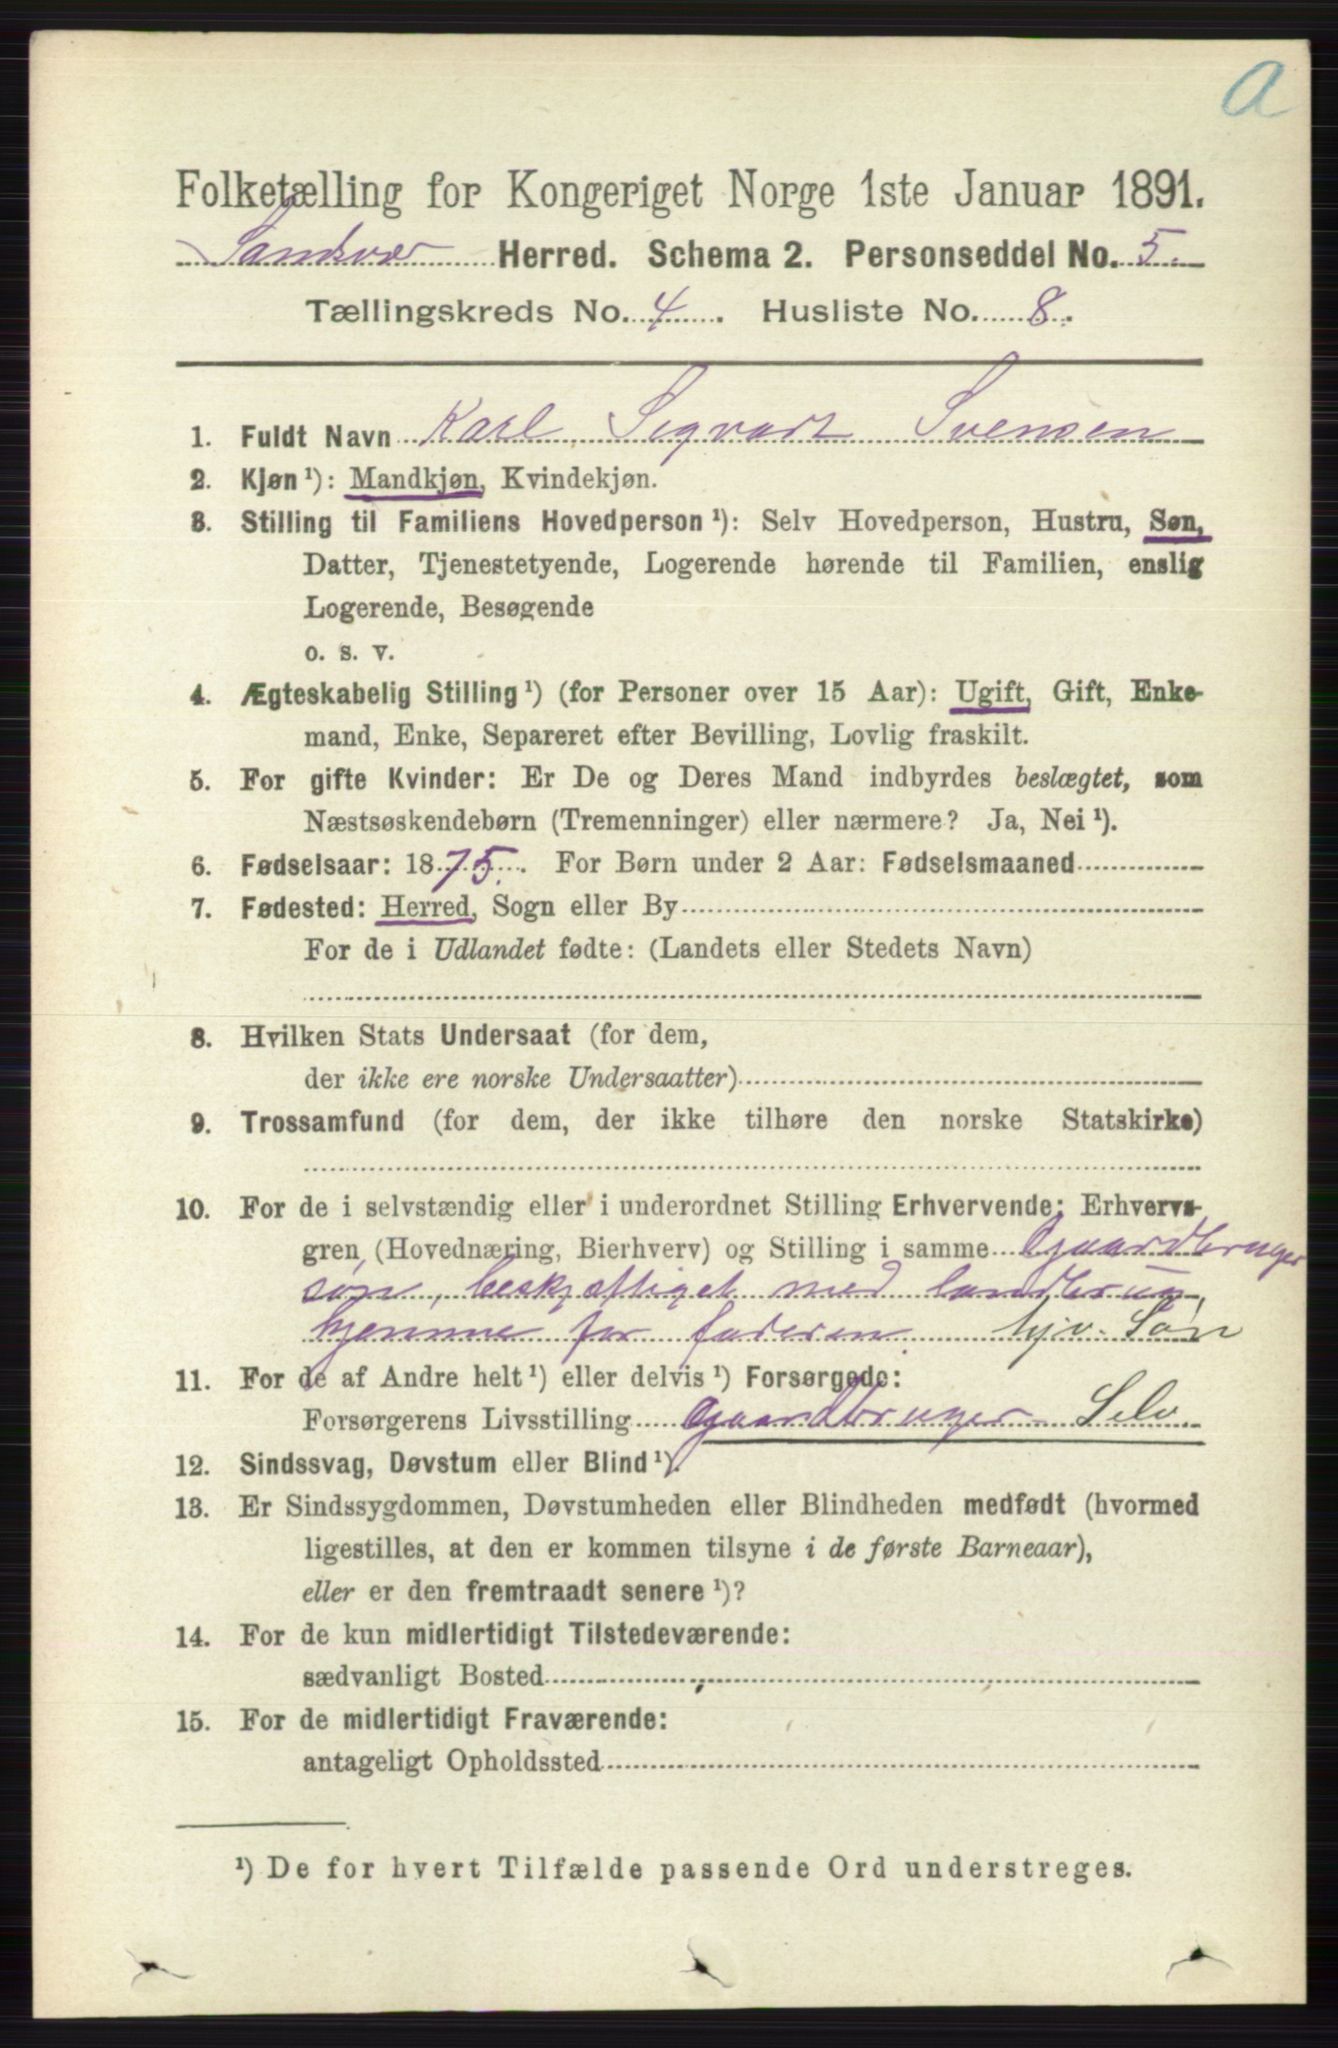 a
Folketælling for Kongeriget Norge 1ste Januar 1891.
Sandsvær Herred. Schema 2. Personseddel No. 5.
Tællingskreds No. 4. Husliste No. 8.
1. Fuldt Navn Karl Sigvart Svensen
2. Kjøn ¹): Mandkjøn, Kvindekjøn.
3. Stilling til Familiens Hovedperson ¹): Selv Hovedperson, Hustru, Søn,
Datter, Tjenestetyende, Logerende hørende til Familien, enslig
Logerende, Besøgende
o. s. v.
4. Ægteskabelig Stilling ¹) (for Personer over 15 Aar): Ugift, Gift, Enke-
mand, Enke, Separeret efter Bevilling, Lovlig fraskilt.
5. For gifte Kvinder: Er De og Deres Mand indbyrdes beslægtet, som
Næstsøskendebørn (Tremenninger) eller nærmere? Ja, Nei ¹).
6. Fødselsaar: 1875. For Børn under 2 Aar: Fødselsmaaned
7. Fødested: Herred, Sogn eller By
For de i Udlandet fødte: (Landets eller Stedets Navn)
8. Hvilken Stats Undersaat (for dem,
der ikke ere norske Undersaatter)
9. Trossamfund (for dem, der ikke tilhøre den norske Statskirke)
10. For de i selvstændig eller i underordnet Stilling Erhvervende: Erhvervs-
gren (Hovednæring, Bierhverv) og Stilling i samme Gaardbruger
søn, beskjæftiget med landbrug
hjemme for faderen. hjv. Søn
11. For de af Andre helt ¹) eller delvis ¹) Forsørgede:
Forsørgerens Livsstilling Gaardbruger Selv.
12. Sindssvag, Døvstum eller Blind ¹).
13. Er Sindssygdommen, Døvstumheden eller Blindheden medfødt (hvormed
ligestilles, at den er kommen tilsyne i de første Barneaar),
eller er den fremtraadt senere ¹)?
14. For de kun midlertidigt Tilstedeværende:
sædvanligt Bosted
15. For de midlertidigt Fraværende:
antageligt Opholdssted
¹) De for hvert Tilfælde passende Ord understreges.